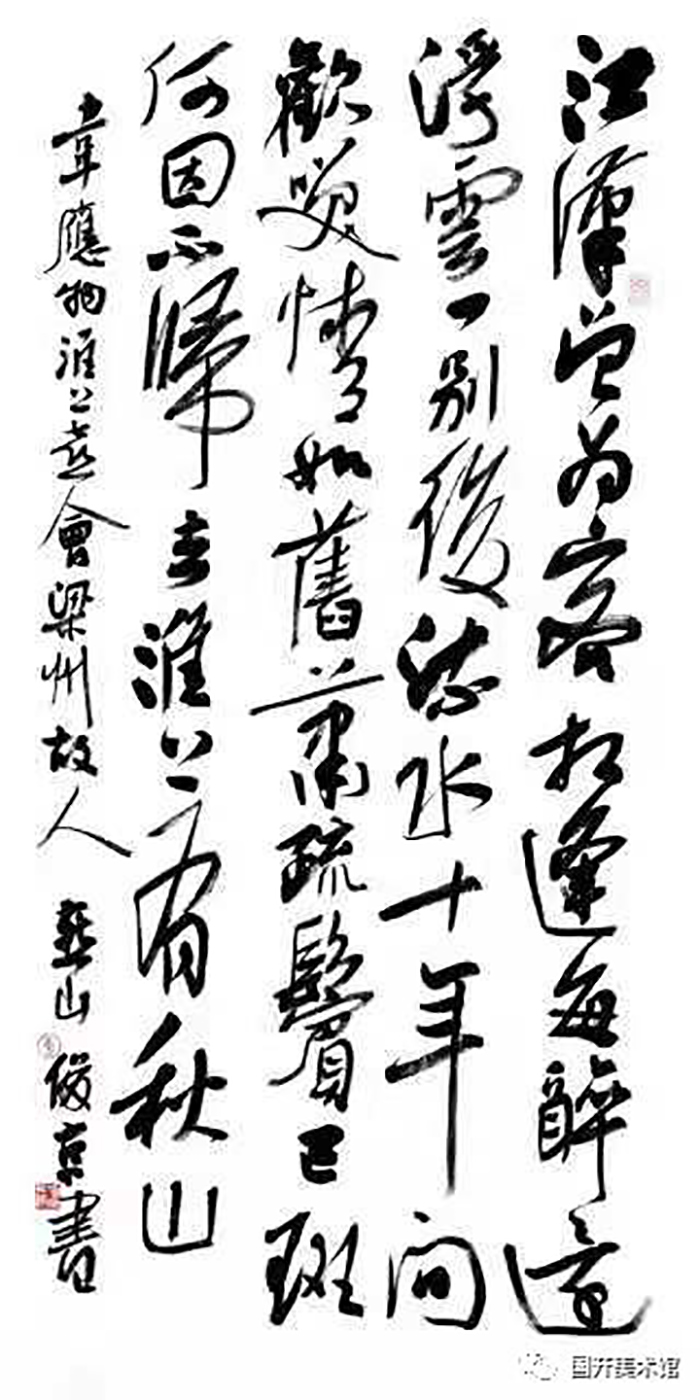 江漢曾為客相逢每醉還
浮雲一別後流水十年間
歡笑情如舊蕭疏鬢已斑
何因不歸去淮上有秋山
韋應物淮上喜會梁州故人 燕山俊京書
国开美术馆